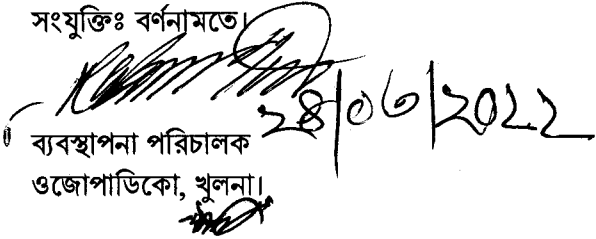 সংযুক্তিঃ বর্ণনামতে।
২৪/০৩/২০২২
ব্যবস্থাপনা পরিচালক
ওজোপাডিকো, খুলনা।